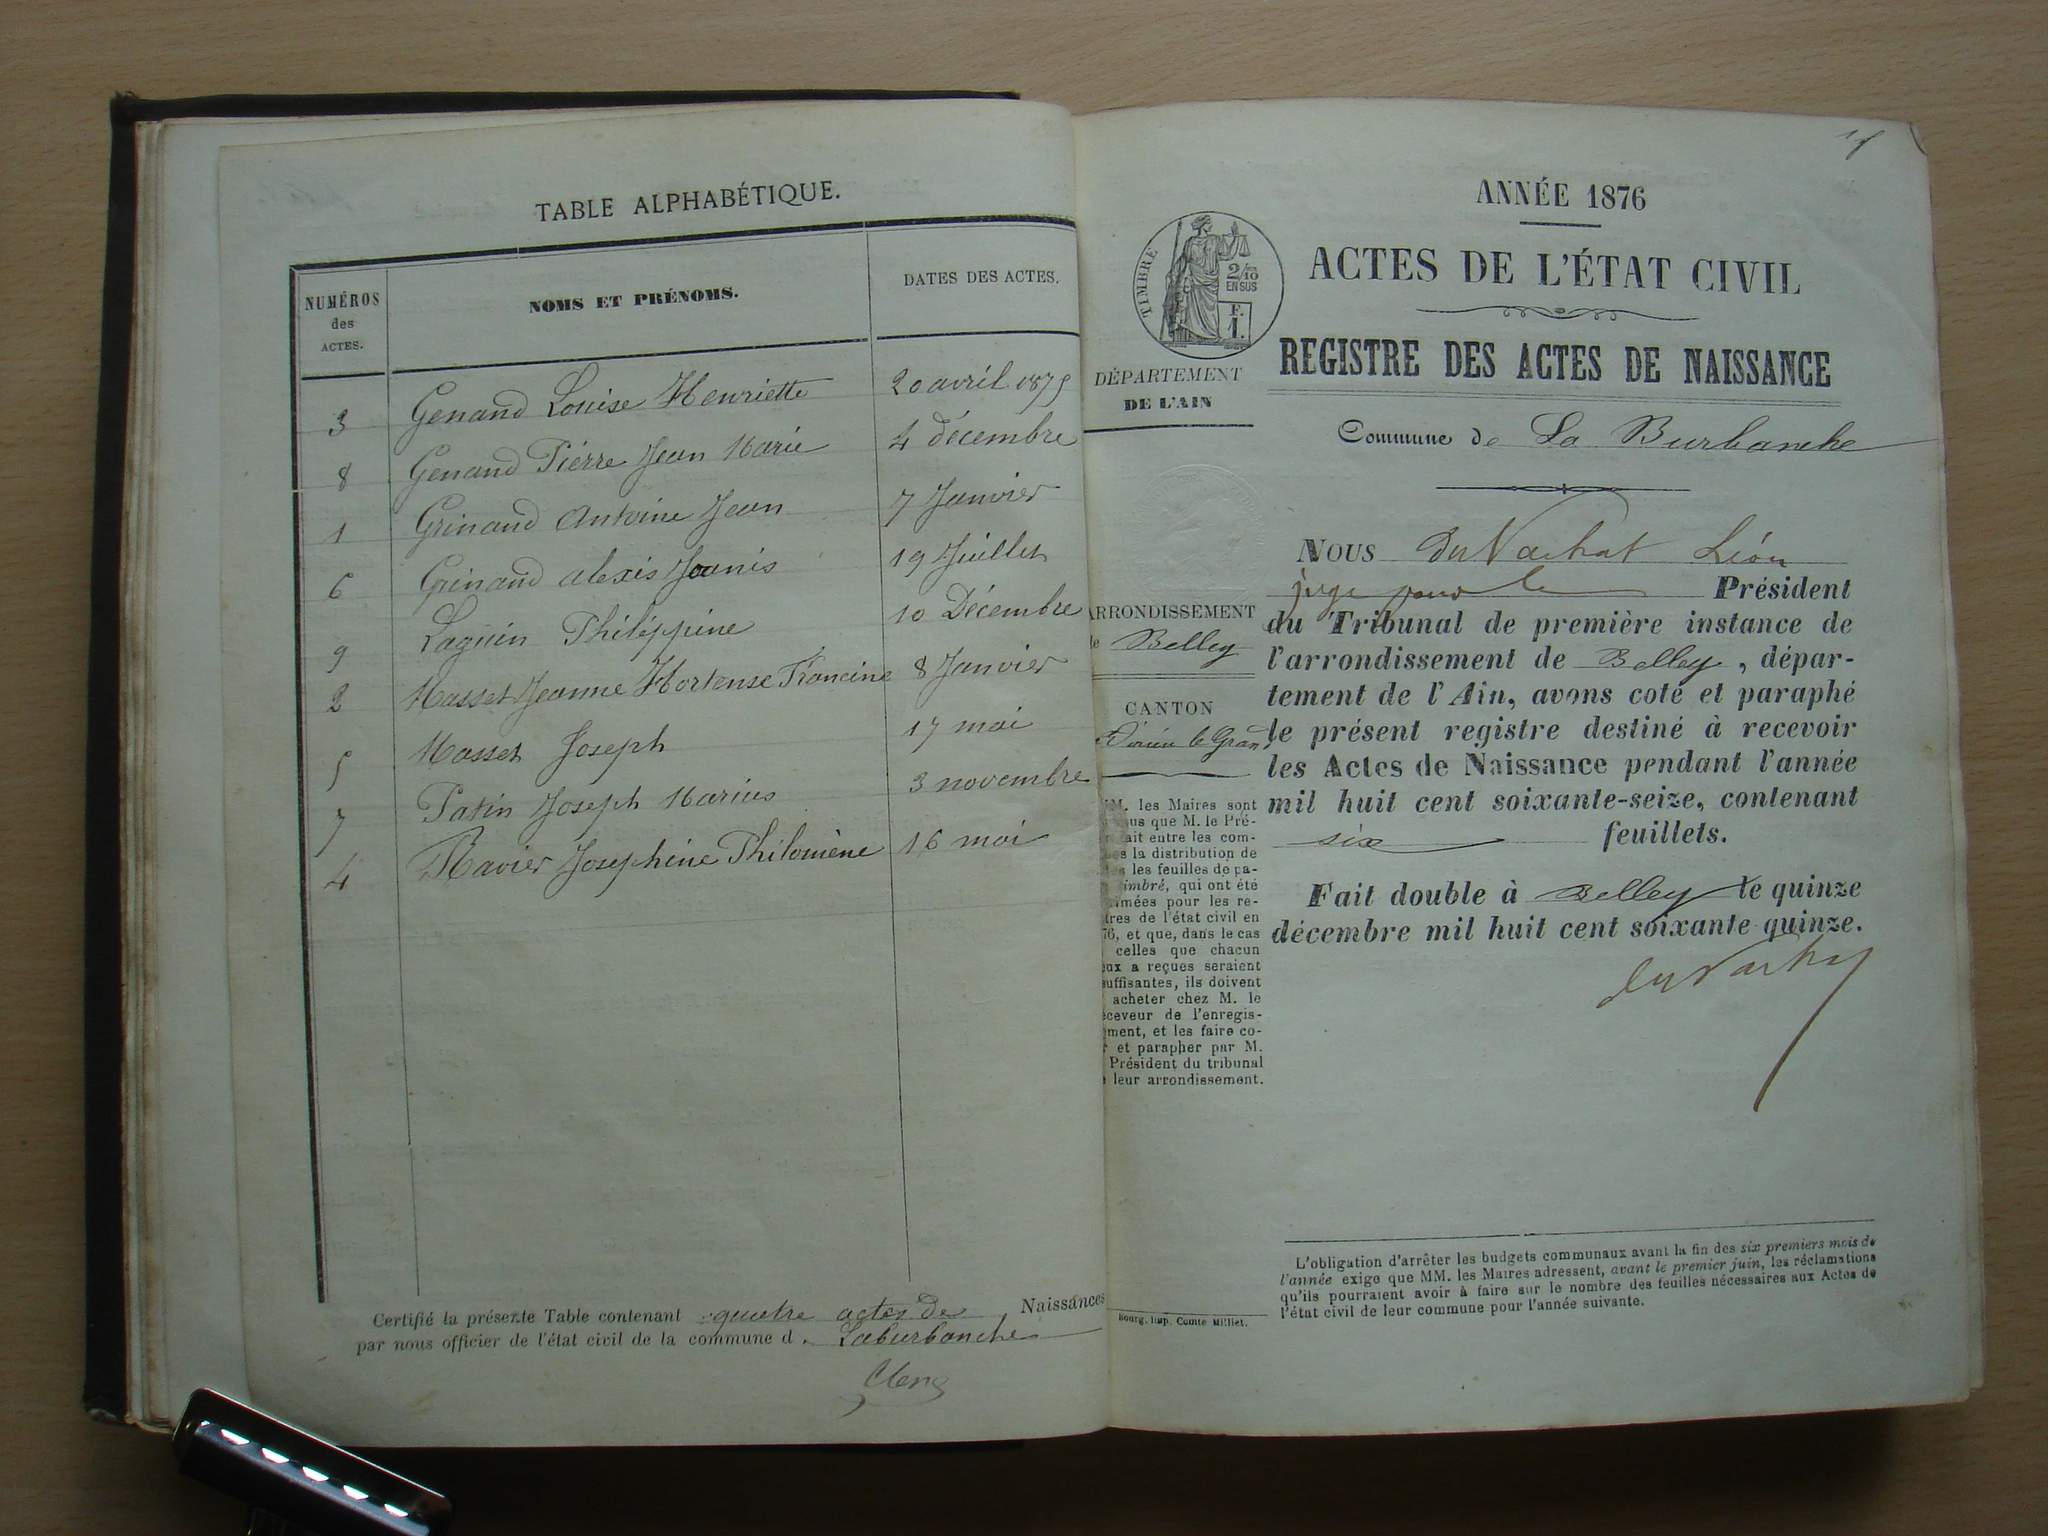 TABLE ALPHABÉTIQUE.
NUMÉROS des ACTES. NOMS ET PRÉNOMS. DATES DES ACTES.
3 Genand Louise Henriette 20 avril 1875
8 Genand Pierre Jean Marie 4 décembre
1 Grinand Antoine Jean 7 Janvier
6 Grinand Alexis Joanis 19 Juillet
9 Laguin Philippine 10 Décembre
2 Masset Jeanne Hortense Francine 8 Janvier
5 Masset Joseph 17 mai
7 Patin Joseph Marius 3 novembre
4 Ravier Josephine Philomène 16 mai
Certifié la présente Table contenant quatre actes de Naissances
par nous officier de l'état civil de la commune d Laburbanche
ANNÉE 1876
ACTES DE L'ÉTAT CIVIL
TIMBRE
2/10
EN SUS
F.
1.
REGISTRE DES ACTES DE NAISSANCE
DÉPARTEMENT
DE L'AIN
Commune de La Burbanche
Nous du Vachat Léon
juge pour le Président
du Tribunal de première instance de
l'arrondissement de Belley, dépar-
tement de l'Ain, avons coté et paraphé
le présent registre destiné à recevoir
les Actes de Naissance pendant l'année
mil huit cent soixante-seize, contenant
six feuillets.
Fait double à Belley le quinze
décembre mil huit cent soixante quinze.
du Vachat
ARRONDISSEMENT
Belley
CANTON
Virieu le Grand
MM. les Maires sont
que M. le Pré-
fait entre les com-
la distribution de
les feuilles de pa-
timbré, qui ont été
primées pour les re-
tres de l'état civil en
76, et que, dans le cas
celles que chacun
eux a reçues seraient
suffisantes, ils doivent
acheter chez M. le
eceveur de l'enregis-
ment, et les faire co-
r et parapher par M.
Président du tribunal
leur arrondissement.
L'obligation d'arrêter les budgets communaux avant la fin des six premiers mois de
l'année exige que MM. les Maires adressent, avant le premier juin, les réclamations
qu'ils pourraient avoir à faire sur le nombre des feuilles nécessaires aux Actes de
l'état civil de leur commune pour l'année suivante.
Bourg, imp. Comte Milliet.